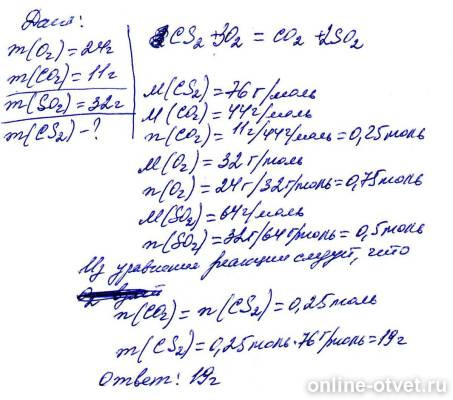 Дано:
m(O₂)=24г
m(CO₂)=11г
m(SO₂)=32г
m(CS₂)-?
CS₂+3O₂ = CO₂+2SO₂
M(CS₂)=76г/моль
M(CO₂)=44г/моль
n(CO₂)=11г/44г/моль=0,25моль
M(O₂)=32г/моль
n(O₂)=24г/32г/моль=0,75моль
M(SO₂)=64г/моль
n(SO₂)=32г/64г/моль=0,5моль
Из уравнения реакции следует, что
n(CO₂)=n(CS₂)=0,25моль
m(CS₂)=0,25моль·76г/моль=19г
Ответ: 19г
online-otvet.ru